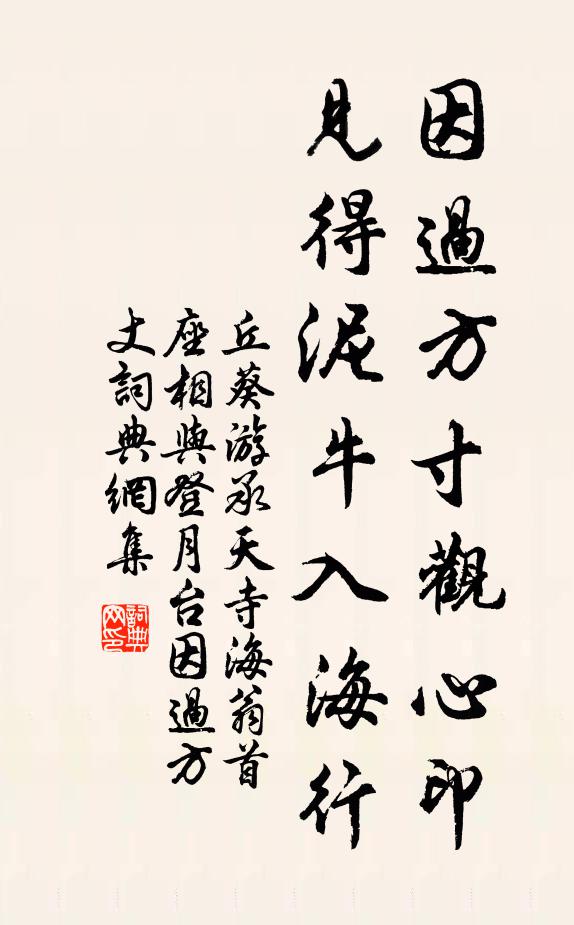 因過方寸觀心印
見得泥牛入海行
丘葵游承天寺海翁首
座相與登月台因過方
丈詞典網集
詞典
网印